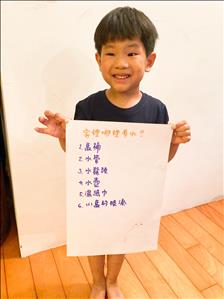 家裡哪裡有水
1. 馬桶
2. 水管
3. 水龍頭
4. 水壺
5. 濕紙巾
6. 的眼淚